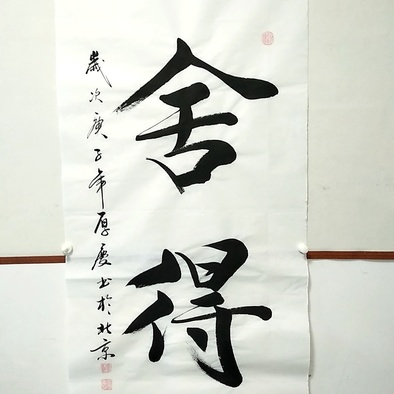 舍得
歲次庚子年厚慶书於北京